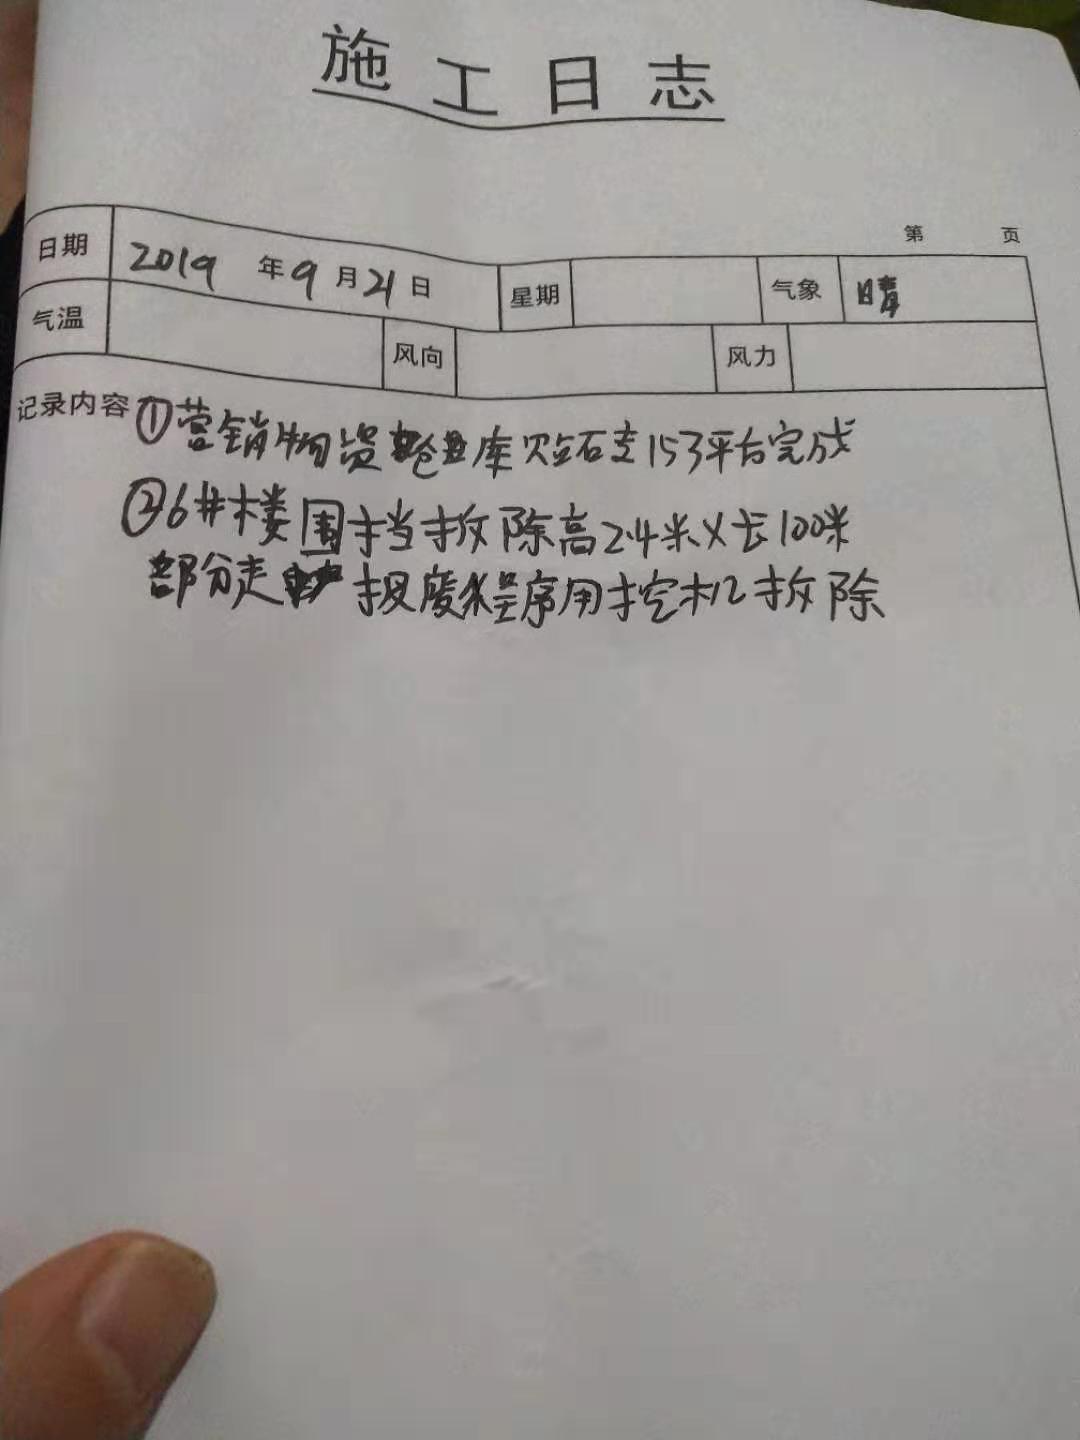 施工日志
第 页
日期 2019 年 9 月 21 日 星期 气象 晴
气温 风向 风力
记录内容 ①营销物资仓库贴石支153平台完成
②6#楼围挡拆除高2.4米X长100米
部分走 报废程序用挖机拆除